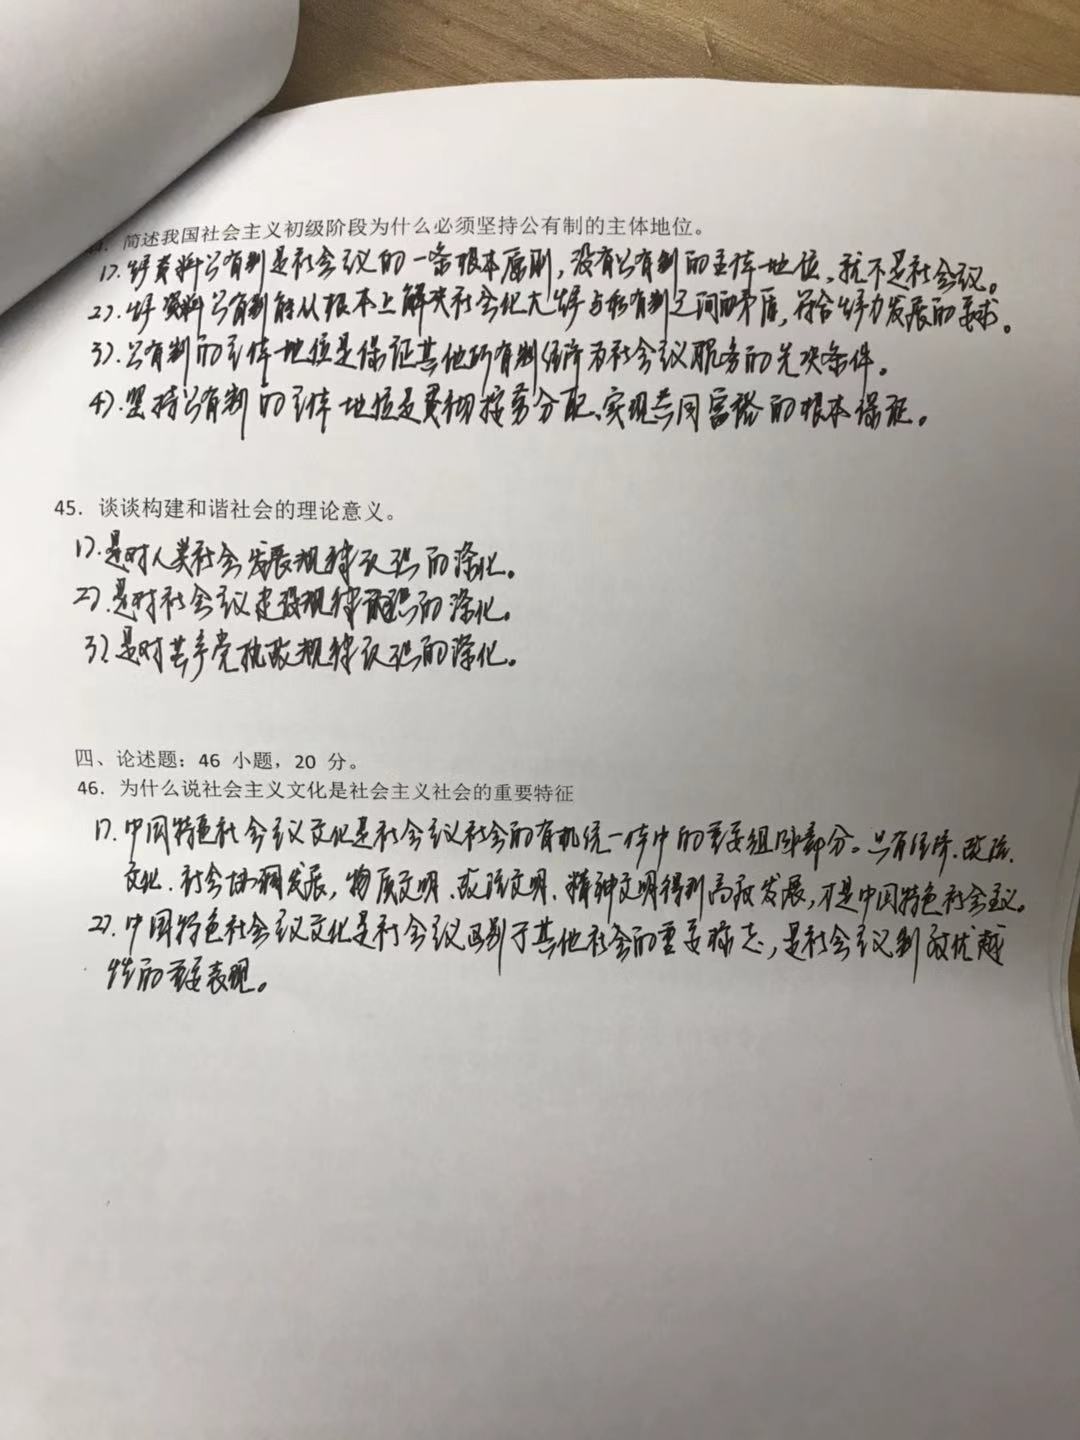 简述我国社会主义初级阶段为什么必须坚持公有制的主体地位。
1).生产资料公有制是社会主义的一条根本原则，没有公有制的主体地位、就不是社会主义。
2).生产资料公有制能从根本上解决社会化大生产与私有制之间的矛盾，符合生产力发展的要求。
3).公有制的主体地位是保证其他所有制经济为社会主义服务的先决条件。
4).坚持公有制的主体地位是贯彻按劳分配、实现共同富裕的根本保证。
45．谈谈构建和谐社会的理论意义。
1).是对人类社会发展规律认识的深化。
2).是对社会主义建设规律认识的深化。
3).是对共产党执政规律认识的深化。
四、论述题：46 小题，20 分。
46．为什么说社会主义文化是社会主义社会的重要特征
1).中国特色社会主义文化是社会主义社会的有机统一体中的重要组成部分。只有经济、政治、
文化、社会协调发展，物质文明、政治文明、精神文明得到高效发展，才是中国特色社会主义。
2).中国特色社会主义文化是社会主义区别于其他社会的重要标志，是社会主义制度优越
性的重要表现。